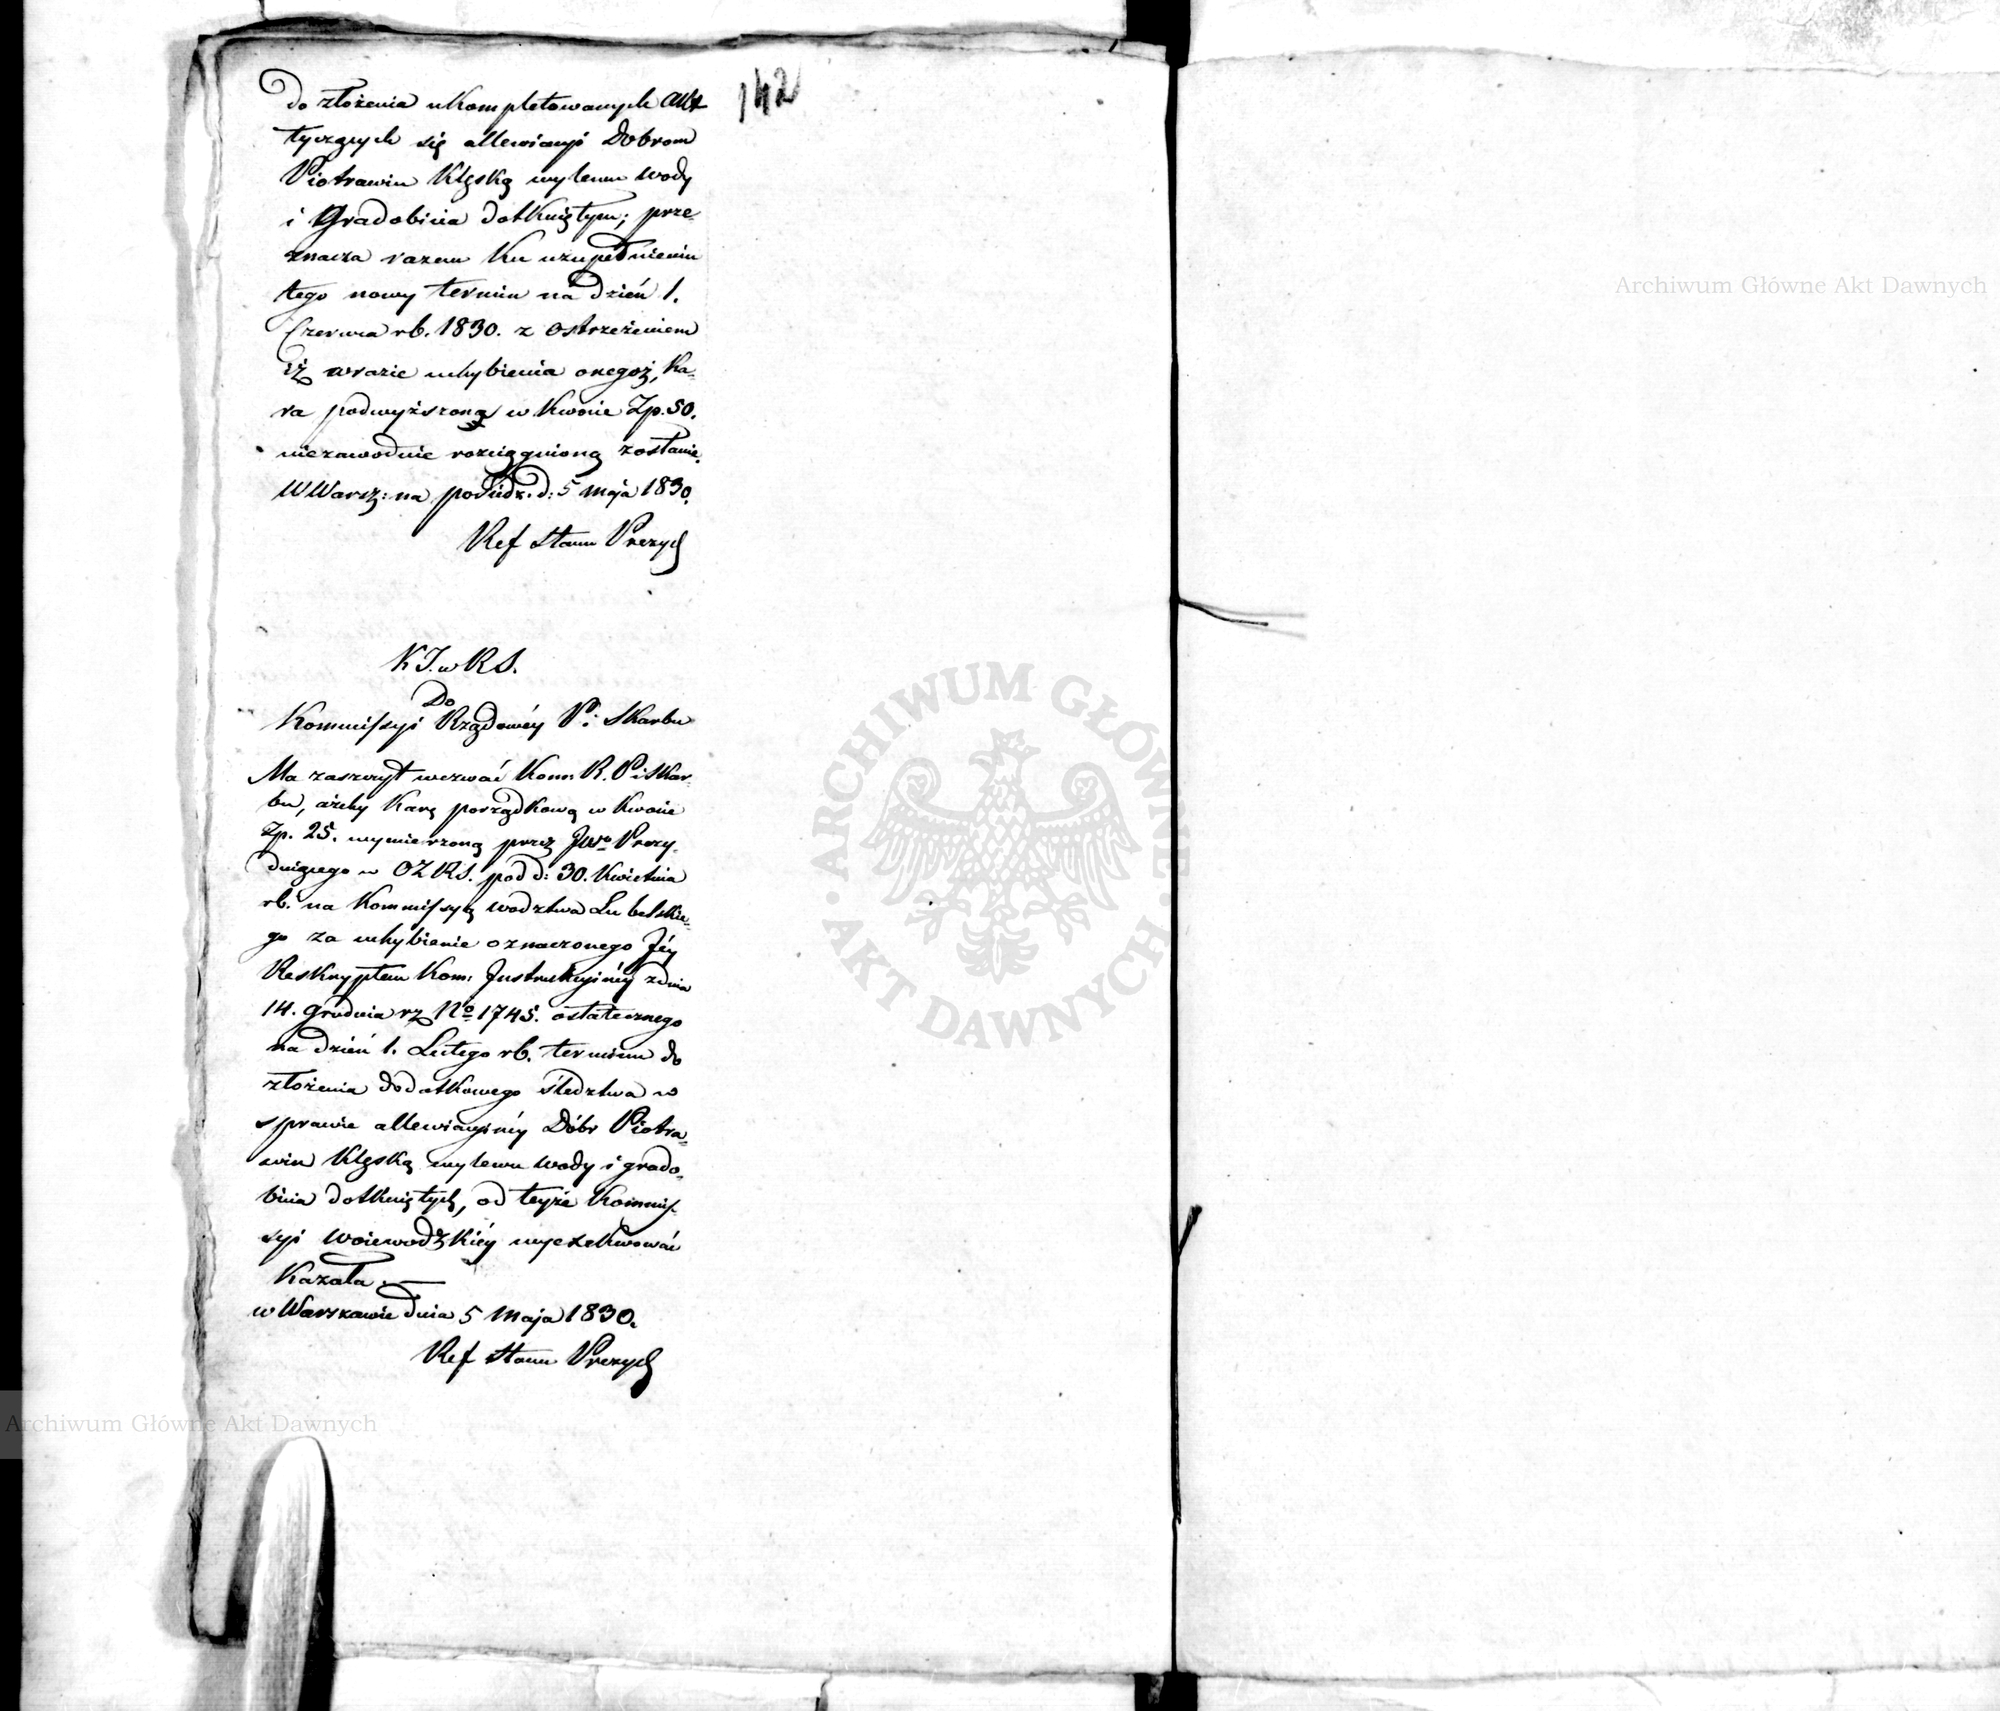 142
do złożenia ukompletowanych Akt
tyczących się allewiacyi Dobrom
Piotrawin Klęską wylewu wody
i Gradobicia dotkniętym; prze-
znacza razem Ku uzupełnieniu
tego nowy termin na dzień 1.
Czerwca rb. 1830. z ostrzeżeniem
iż wrazie uchybienia onegoż, Ka-
ra podwyższoną w Kwocie Zp. 50.
niezawodnie rozciągnioną zostanie.
W Warsz: na posiedz. d: 5 Maja 1830.
Ref Stanu Prezyd
K I. w R S.
Do
Kommissyi Rządowéy P. i Skarbu
Ma zaszczyt wezwać Kom: R. P i Skar-
bu, ażeby Karę porządkową w Kwocie
Zp. 25. wymierzoną przez JWo Prezy-
duiącego w OZKS. pod d: 30. Kwietnia
rb. na Kommissyą wodztwa Lubelskie-
go za uchybienie oznaczonego Jéy
Reskryptem Kom: Instrukcyinéy z dnia
14. Grudnia rz No 1745. ostatecznego
na dzień 1. Lutego rb. terminu do
złożenia dodatkowego śledztwa w
sprawie allewiacyinéy Dóbr Piotra-
win Klęską wylewu wody i grado-
bicia dotkniętych, od teyże Kommis-
syi Woiewodzkiéy wyexekwować
Kazała.
w Warszawie dnia 5 Maja 1830.
Ref Stanu Prezyd
Archiwum Główne Akt Dawnych
ARCHIWUM GŁÓWNE AKT DAWNYCH
Archiwum Główne Akt Dawnych